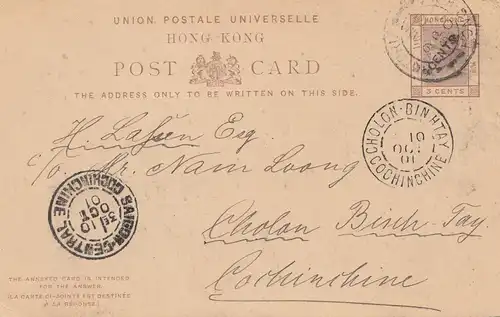 UNION POSTALE UNIVERSELLE
HONG-KONG
POST CARD
THE ADDRESS ONLY TO BE WRITTEN ON THIS SIDE.
HONG KONG
3 CENTS
H. Lassen Esq.
c/o Mr. Nam Loong
Cholon Binh-Tay.
Cochinchine
CHOLON-BINHTAY
10
OCT
01
COCHINCHINE
SAIGON-CENTRAL
10
OCT
01
COCHINCHINE
THE ANNEXED CARD IS INTENDED
FOR THE ANSWER.
(LA CARTE CI-JOINTE EST DESTINÉE
A LA RÉPONSE.)